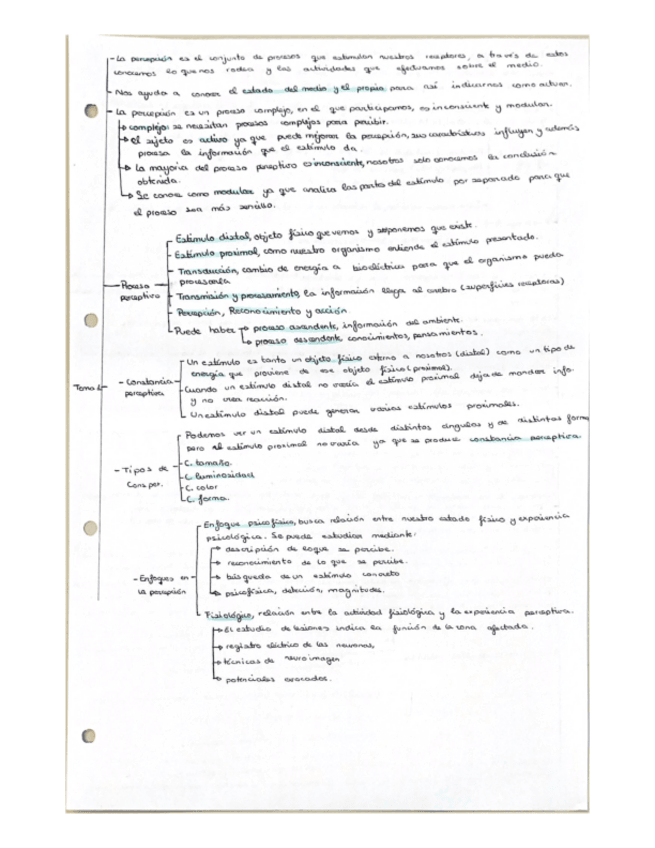 - La percepción es el conjunto de procesos que estimulan nuestros receptores, a través de estos
conocemos lo que nos rodea y las actividades que efectuamos sobre el medio.
- Nos ayuda a conocer el estado del medio y el propio para así indicarnos como actuar.
- La percepción es un proceso complejo, en el que participamos, es inconsciente y modular.
complejo: se necesitan procesos complejos para percibir.
el sujeto es activo ya que puede mejorar la percepción, sus características influyen y además
procesa la información que el estímulo da.
La mayoría del proceso perceptivo es inconsciente, nosotros solo conocemos la conclusión
obtenida.
Se conoce como modular ya que analiza las partes del estímulo por separado para que
el proceso sea más sencillo.
- Estímulo distal, objeto físico que vemos y suponemos que existe.
- Estímulo proximal, como nuestro organismo entiende el estímulo presentado.
- Transducción, cambio de energía a bioeléctrica para que el organismo pueda
procesarla
- Proceso perceptivo
- Transmisión y procesamiento, la información llega al cerebro (superficies receptoras)
- Percepción, Reconocimiento y acción
- Puede haber proceso ascendente, información del ambiente.
proceso descendente, conocimientos, pensamientos.
Tema 1
- Constancia perceptiva
- Un estímulo es tanto un objeto físico externo a nosotros (distal) como un tipo de
energía que proviene de ese objeto físico (proximal).
- Cuando un estímulo distal no varía el estímulo proximal deja de mandar info.
y no crea reacción.
- Un estímulo distal puede generar varios estímulos proximales.
- Tipos de Cons per.
- Podemos ver un estímulo distal desde distintos ángulos y de distintas forma
pero el estímulo proximal no varía ya que se produce constancia perceptiva.
- C. tamaño.
- C. luminosidad
- C. color
- C. forma.
- Enfoques en la percepción
- Enfoque psicofísico, busca relación entre nuestro estado físico y experiencia
psicológica. Se puede estudiar mediante:
descripción de lo que se percibe.
reconocimiento de lo que se percibe.
búsqueda de un estímulo concreto
psicofísica, detección, magnitudes.
- Fisiológico, relación entre la actividad fisiológica y la experiencia perceptiva.
El estudio de lesiones indica la función de la zona afectada.
registro eléctrico de las neuronas,
técnicas de neuroimagen
potenciales evocados.